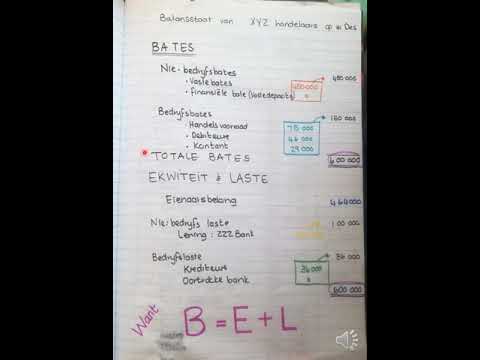 Balansstaat van XYZ handelaars op 31 Des
BATES
Nie-bedryfsbates 480 000
• Vaste bates 480 000
• Finansiële bate (Vaste deposito) 0
Bedryfsbates 150 000
• Handelsvoorraad
• Debiteure 46 000
• Kontant 29 000
TOTALE BATES 600 000
EKWITEIT & LASTE
Eienaarsbelang 464 000
Nie-bedryfs laste 100 000
Lening: ZZZ Bank
Bedryfslaste 36 000
Krediteure 36 000
Oortrokke bank 0
600 000
Want B = E + L